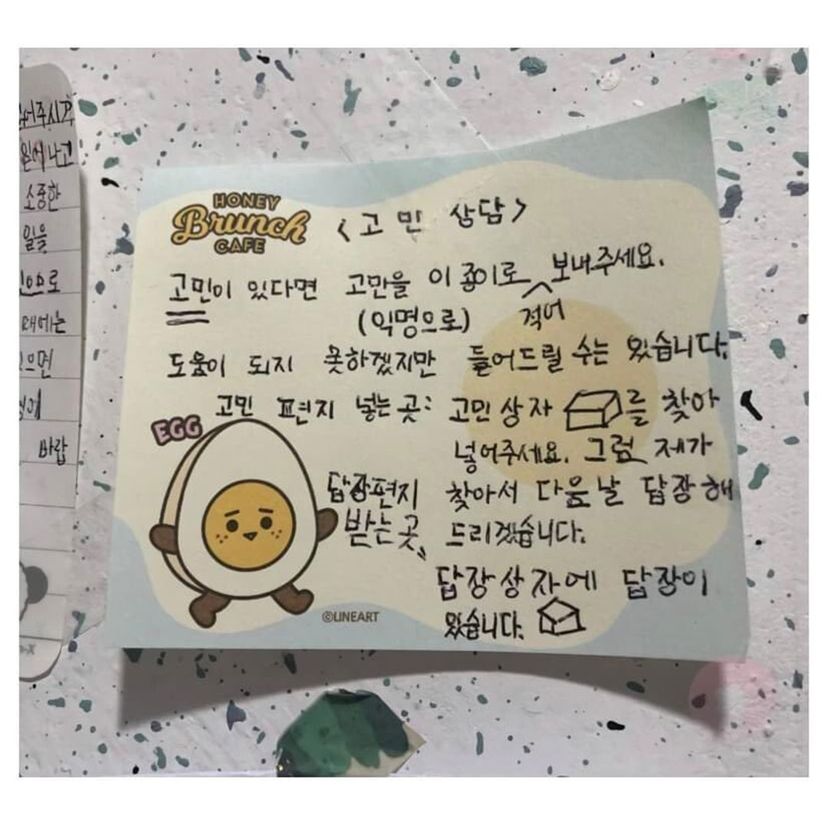 어주시기
소중한
일을
때에는
으면
바랍
HONEY
Brunch
CAFE
<고민 상담>
고민이 있다면 고민을 이 종이로 적어 보내주세요.
(익명으로)
도움이 되지 못하겠지만 들어드릴 수는 있습니다.
고민 편지 넣는 곳: 고민상자를 찾아
넣어주세요. 그럼 제가
찾아서 다음날 답장해
드리겠습니다.
EGG
답장편지
받는곳
답장상자에 답장이
있습니다.
©LINEART